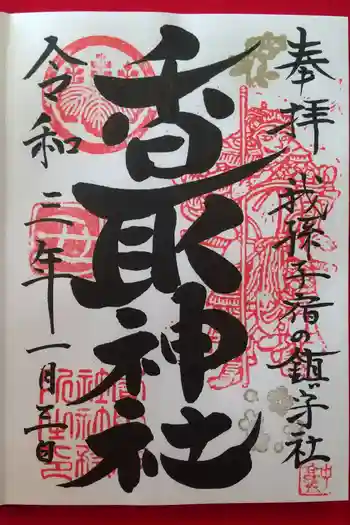 奉拝
我孫子宿の鎮守社
香取神社
令和三年一月五日